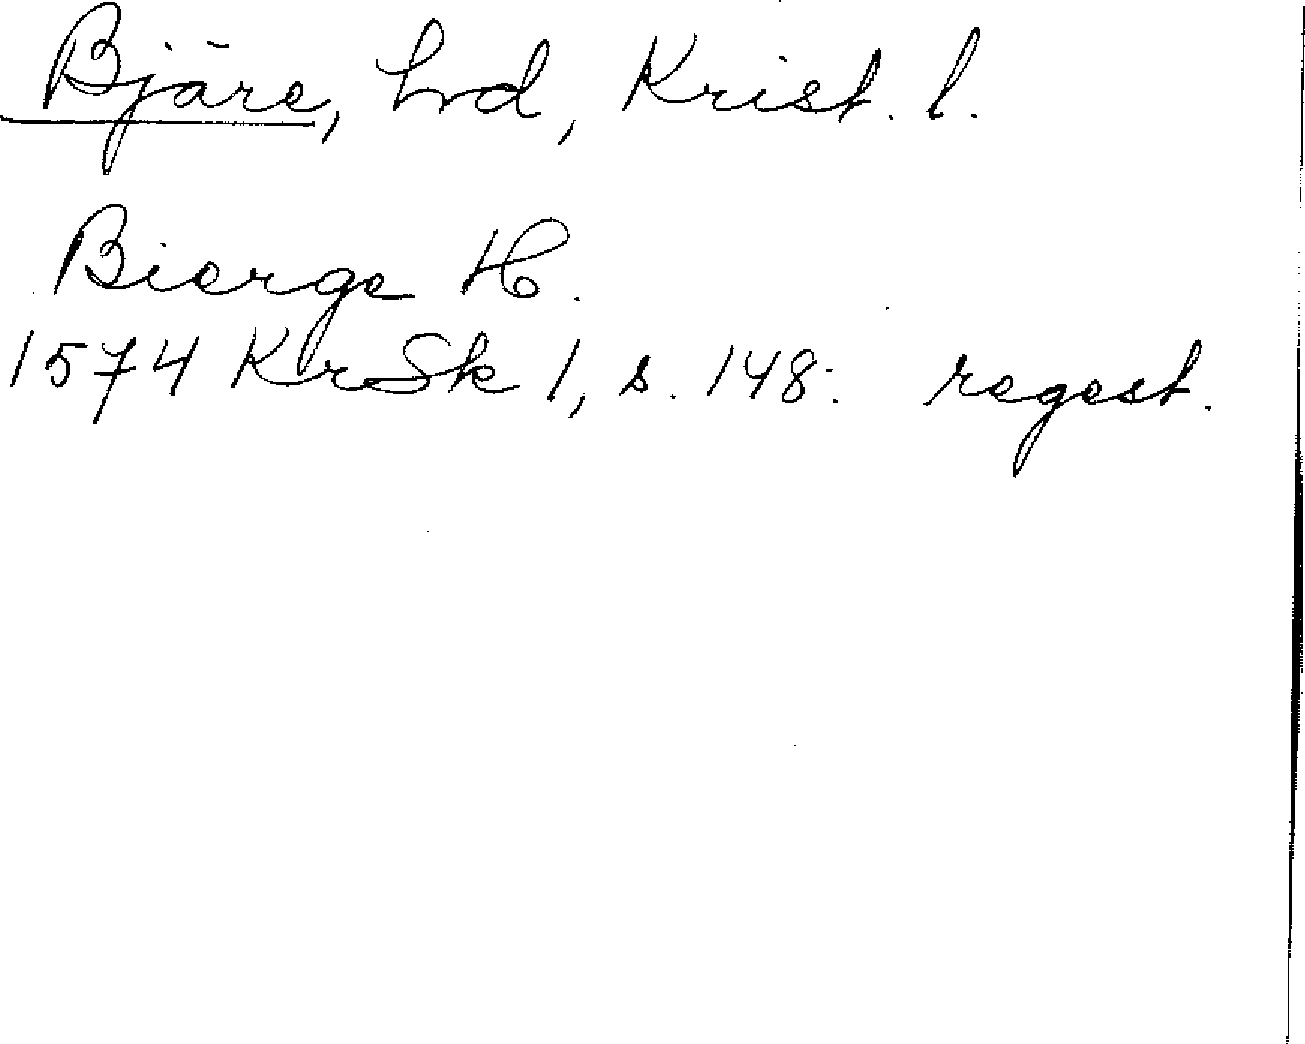 Bjäre, hrd, Krist. l.
Bierge H.
1574 KrSk 1, s. 148: regest.